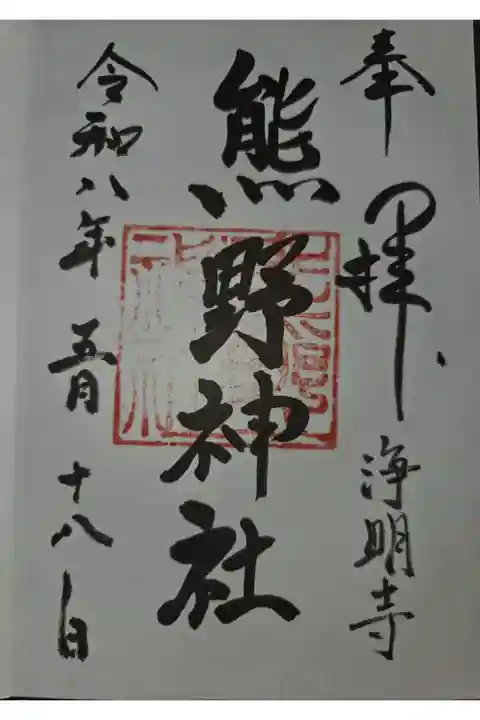 奉拝、浄明寺
熊野神社
令和八年五月十八日